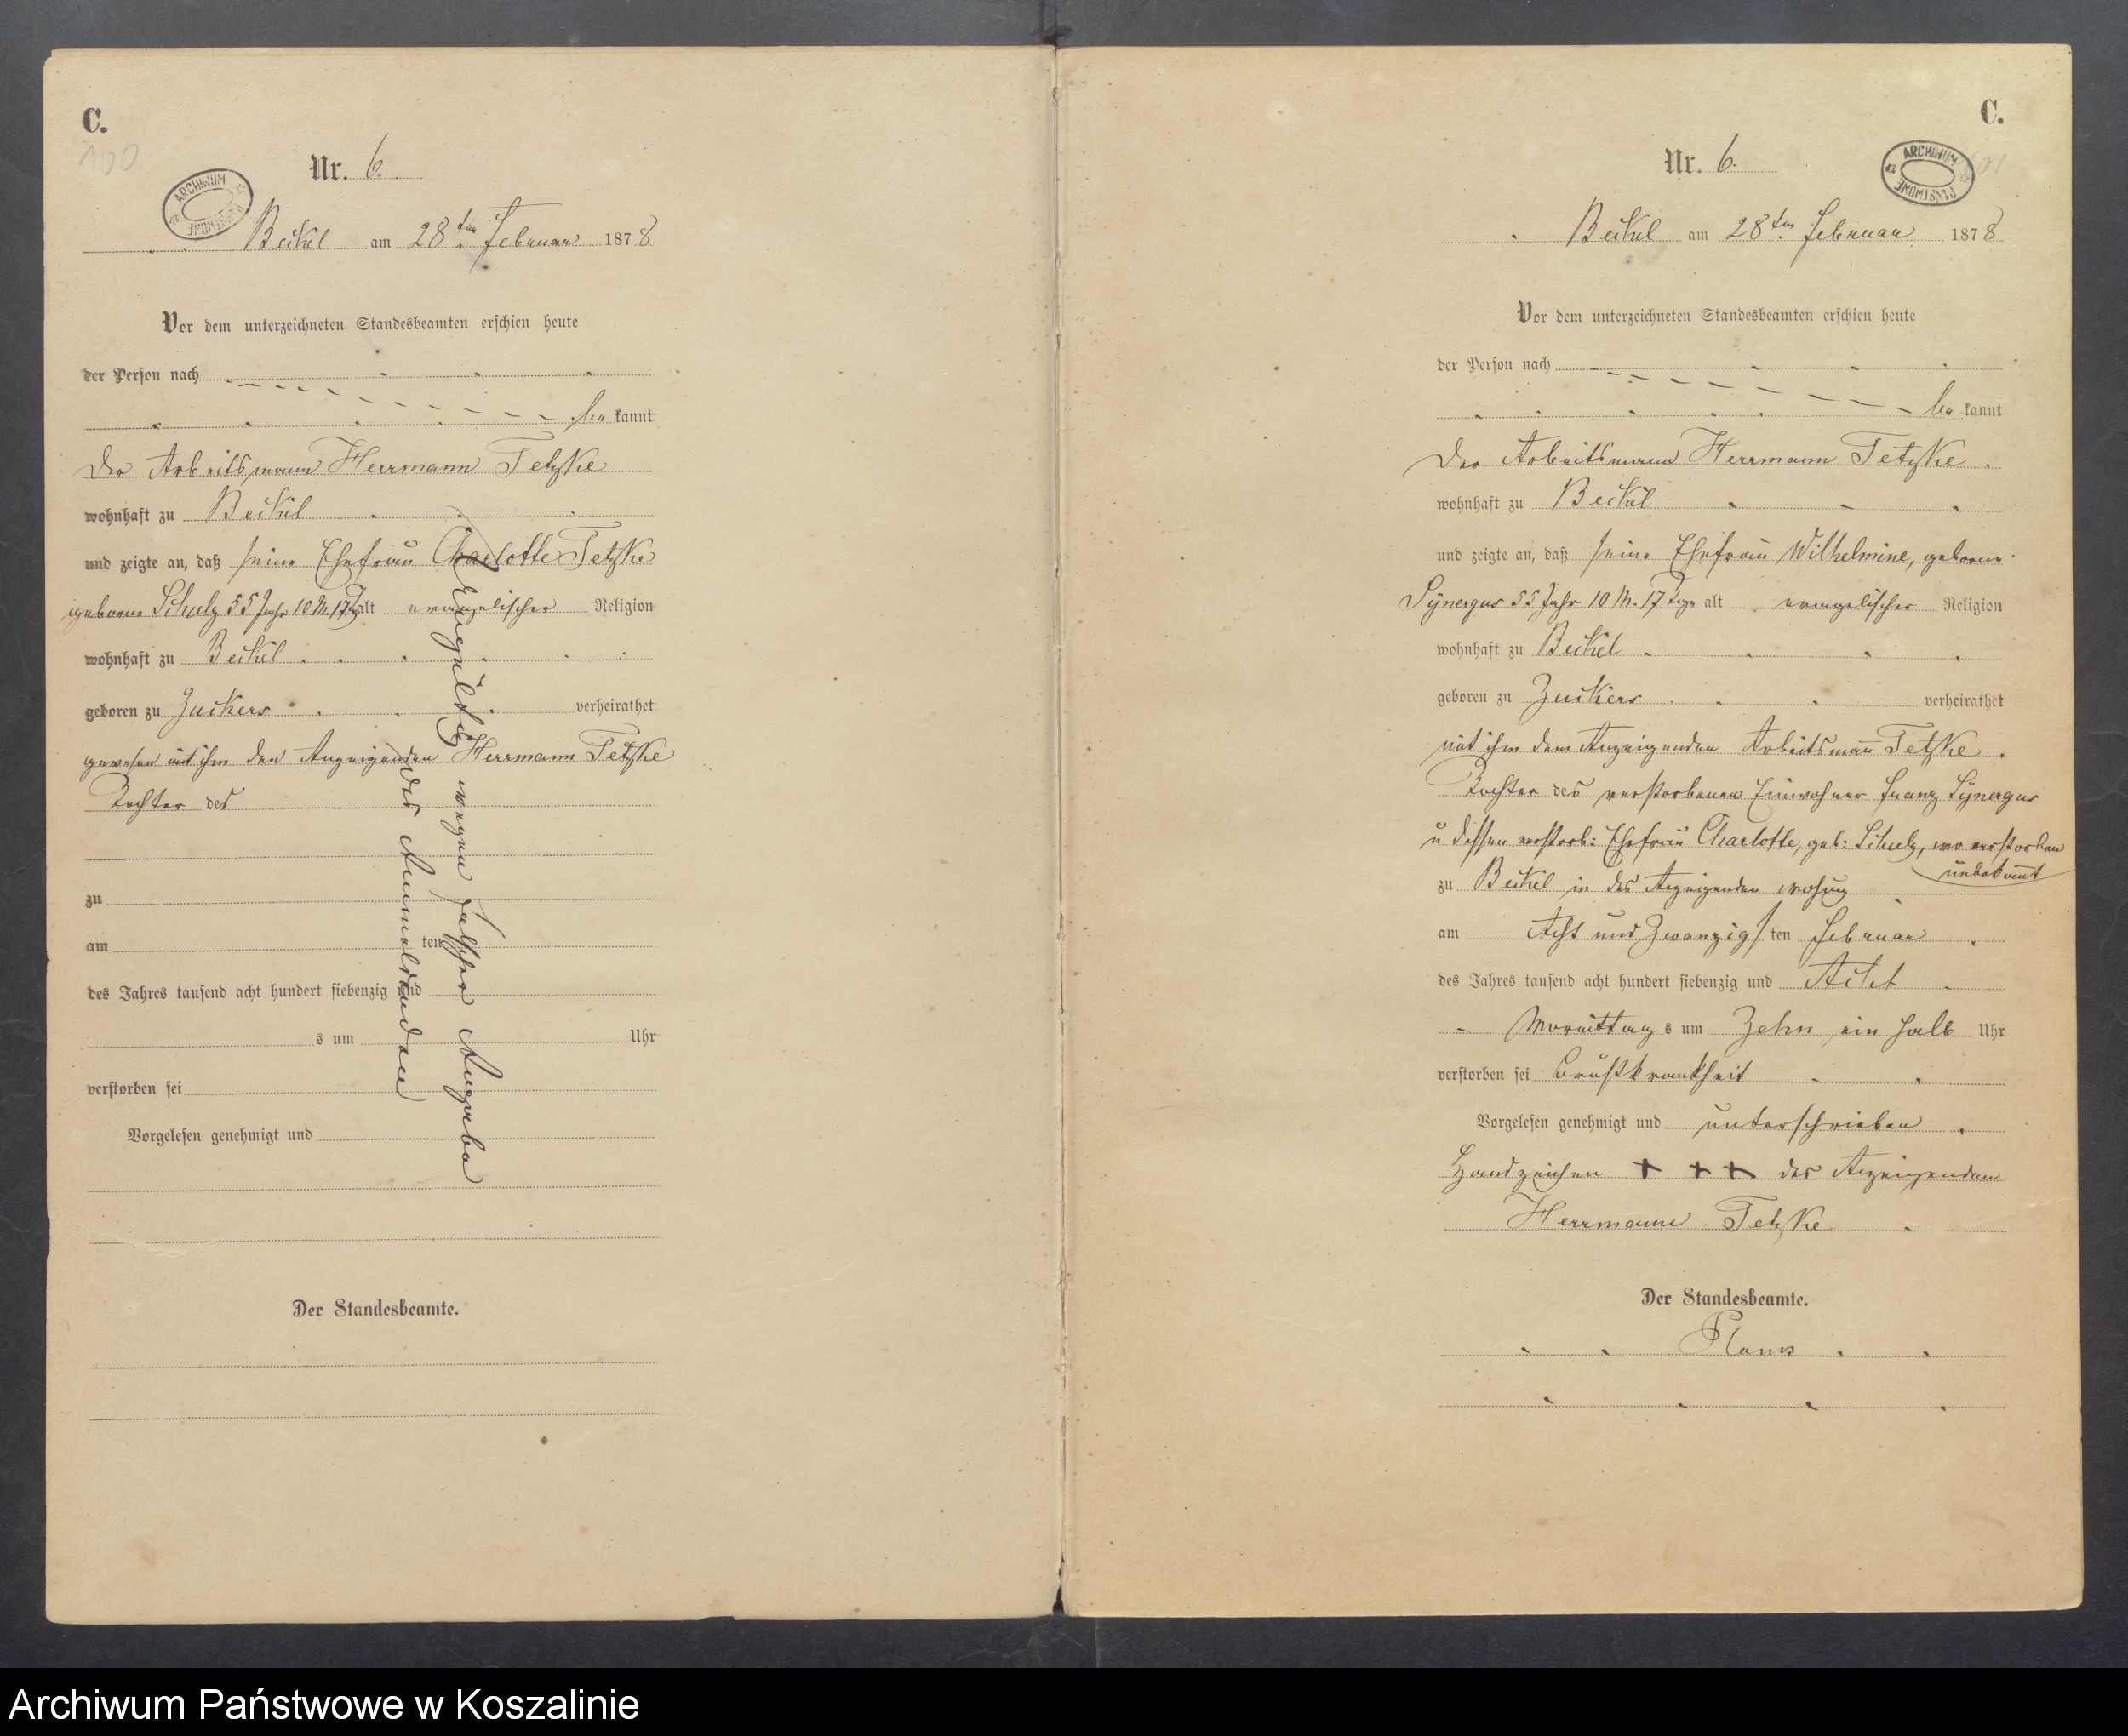 C.
100
ARCHIWUM PAŃSTWOWE
Nr. 6.
Beikel am 28ten Februar 1878
Vor dem unterzeichneten Standesbeamten erschien heute
der Person nach
be kannt
Der Arbeitsmann Herrmann Tetzke
wohnhaft zu Beikel
und zeigte an, daß seine Ehefrau Charlotte Tetzke
geborne Schulz 55 Jahr 10 M. 17 Tg alt evangelischer Religion
wohnhaft zu Beikel
geboren zu Zuckers verheirathet
gewesen mit ihm den Anzeigenden Herrmann Tetzke
Tochter des
zu
am ten
des Jahres tausend acht hundert siebenzig und
s um Uhr
verstorben sei
Vorgelesen genehmigt und
Der Standesbeamte.
Ungültig wegen falscher Angabe
des Anmeldenden
C.
101
ARCHIWUM PAŃSTWOWE
Nr. 6.
Beikel am 28ten Februar 1878
Vor dem unterzeichneten Standesbeamten erschien heute
der Person nach
be kannt
Der Arbeitsmann Herrmann Tetzke
wohnhaft zu Beikel
und zeigte an, daß seine Ehefrau Wilhelmine, geborne
Synergus 55 Jahr 10 M. 17 Tage alt evangelischer Religion
wohnhaft zu Beikel
geboren zu Zuckers verheirathet
mit ihm dem Anzeigenden Arbeitsman̄ Tetzke
Tochter des verstorbenen Einwohner Franz Synergus
u dessen verstorb: Ehefrau Charlotte, geb: Schulz, wo verstorben
unbekan̄t
zu Beikel in des Anzeigenden wohung
am Acht und Zwanzigs ten Februar
des Jahres tausend acht hundert siebenzig und Acht
Vormittag s um Zehn ein halb Uhr
verstorben sei Brustkrankheit
Vorgelesen genehmigt und unterschrieben
Handzeichen + + + des Anzeigenden
Herrmann Tetzke
Der Standesbeamte.
Archiwum Państwowe w Koszalinie